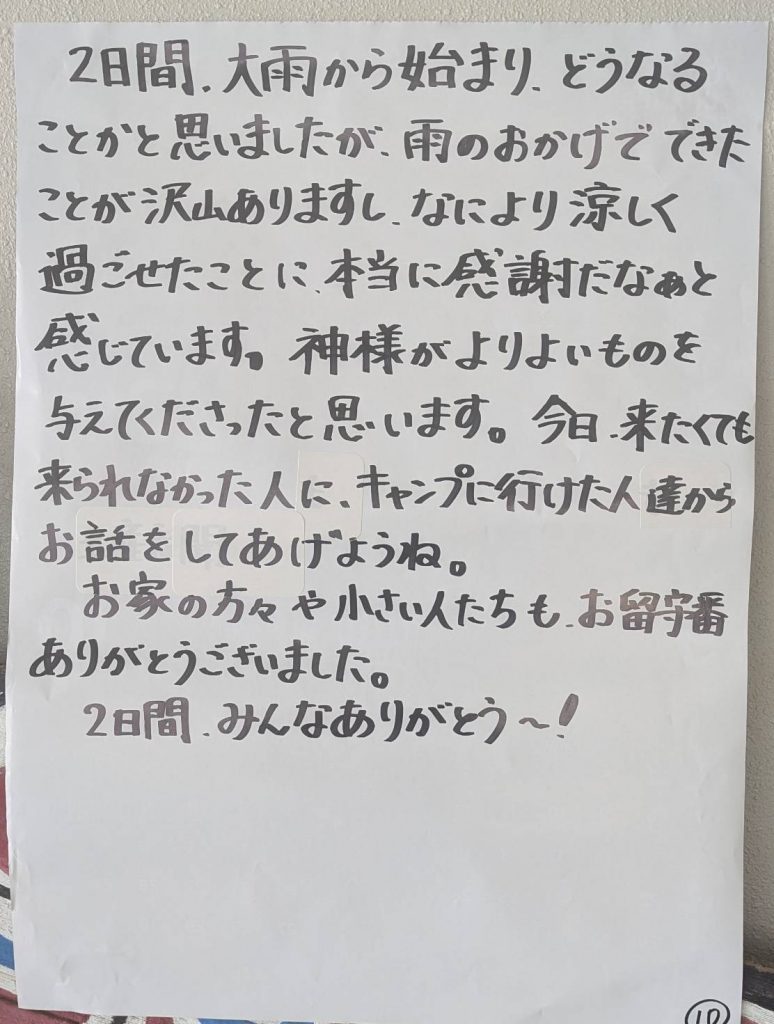 2日間、大雨から始まり、どうなる
ことかと思いましたが、雨のおかげでできた
ことが沢山ありますし、なにより涼しく
過ごせたことに、本当に感謝だなぁと
感じています。神様がよりよいものを
与えてくださったと思います。今日、来たくても
来られなかった人に、キャンプに行けた人達から
お話をしてあげようね。
お家の方々や小さい人たちも、お留守番
ありがとうございました。
2日間、みんなありがとう〜!